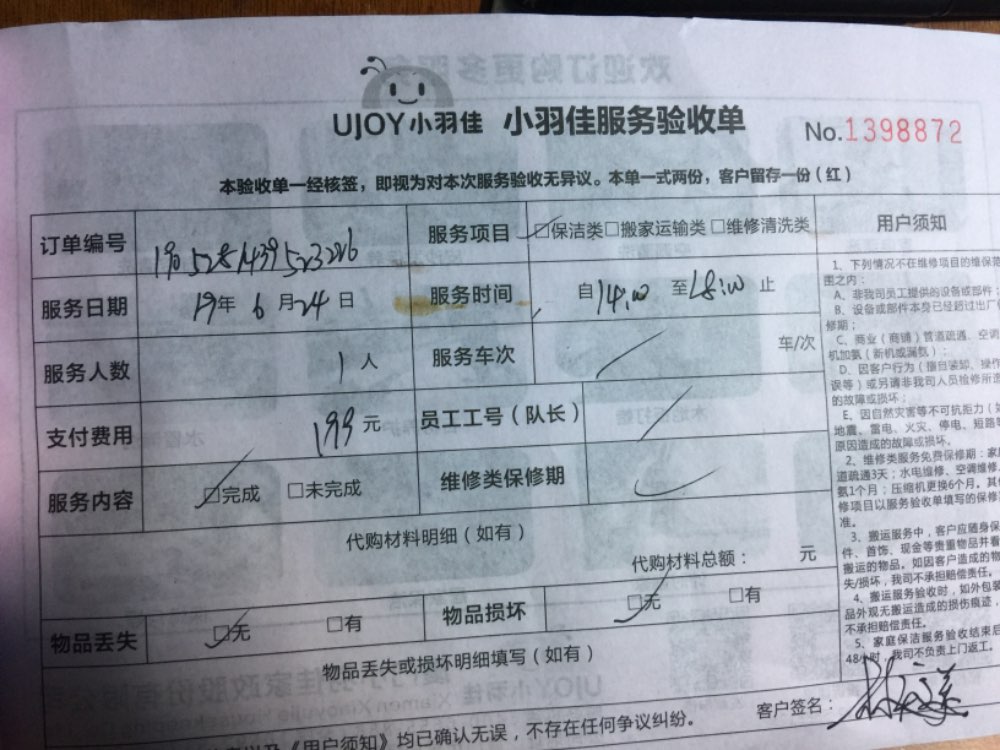 UJOY小羽佳 小羽佳服务验收单 No.1398872
本验收单一经核签，即视为对本次服务验收无异议。本单一式两份，客户留存一份（红）
订单编号 服务项目 ☑保洁类□搬家运输类□维修清洗类
服务日期 19年 6月24日 服务时间 自14:00至18:00止
服务人数 1人 服务车次 车/次
支付费用 199元 员工工号（队长）
服务内容 ☑完成 □未完成 维修类保修期
代购材料明细（如有）
代购材料总额： 元
物品丢失 ☑无 □有 物品损坏 ☑无 □有
物品丢失或损坏明细填写（如有）
《用户须知》均已确认无误，不存在任何争议纠纷。 客户签名：
用户须知
1、下列情况不在维修项目的维保范
围之内：
A、非我司员工提供的设备或部件；
B、设备或部件本身已经超过出厂
修期；
C、商业（商铺）管道疏通、空调
机加氨（新机或漏氨）；
D、因客户行为（擅自装卸、操作
误等）或另请非我司人员检修所造
的故障或损坏；
E、因自然灾害等不可抗拒力（如
地震、雷电、火灾、停电、短路等
原因造成的故障或损坏。
2、维修类服务免费保修期：家庭
道疏通3天；水电维修、空调维修
氨1个月；压缩机更换6个月。其
修项目以服务验收单填写的保修
准。
3、搬运服务中，客户应随身保
件、首饰、现金等贵重物品并看
搬运的物品。如因客户造成的物
失/损坏，我司不承担赔偿责任。
4、搬运服务验收时，如外包装
品外观无搬运造成的损伤痕迹，
不承担赔偿责任。
5、家庭保洁服务验收结束后
48小时，我司不负责上门返工。